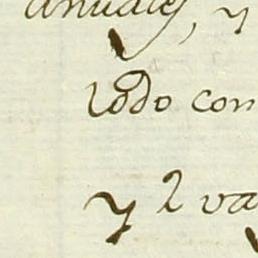 anuales, y
todo con
y